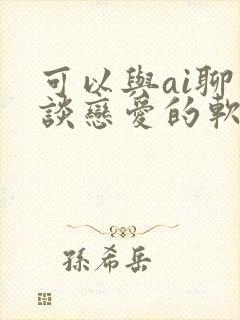 可以與ai聊
談戀愛的軟
孫希岳